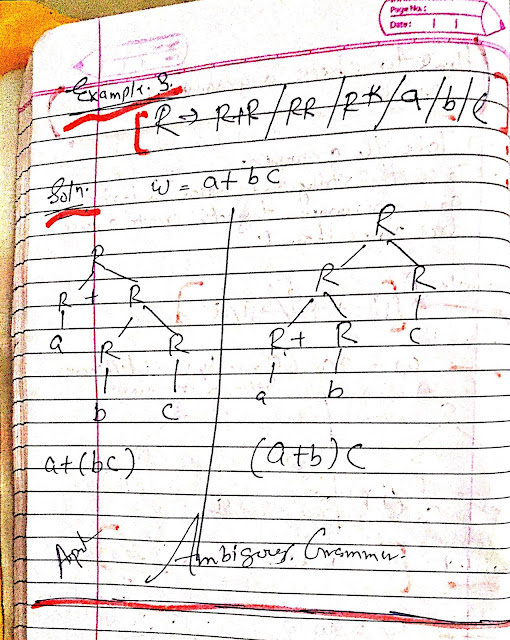 Page No.:
Date:
Example. 3.
R → R+R / RR / R* / a / b / c
Soln.
w = a+bc
R
R + R
a R R
b c
a+(bc)
R.
R R
R + R c
a b
(a+b)c
Ambigous. Grammar.